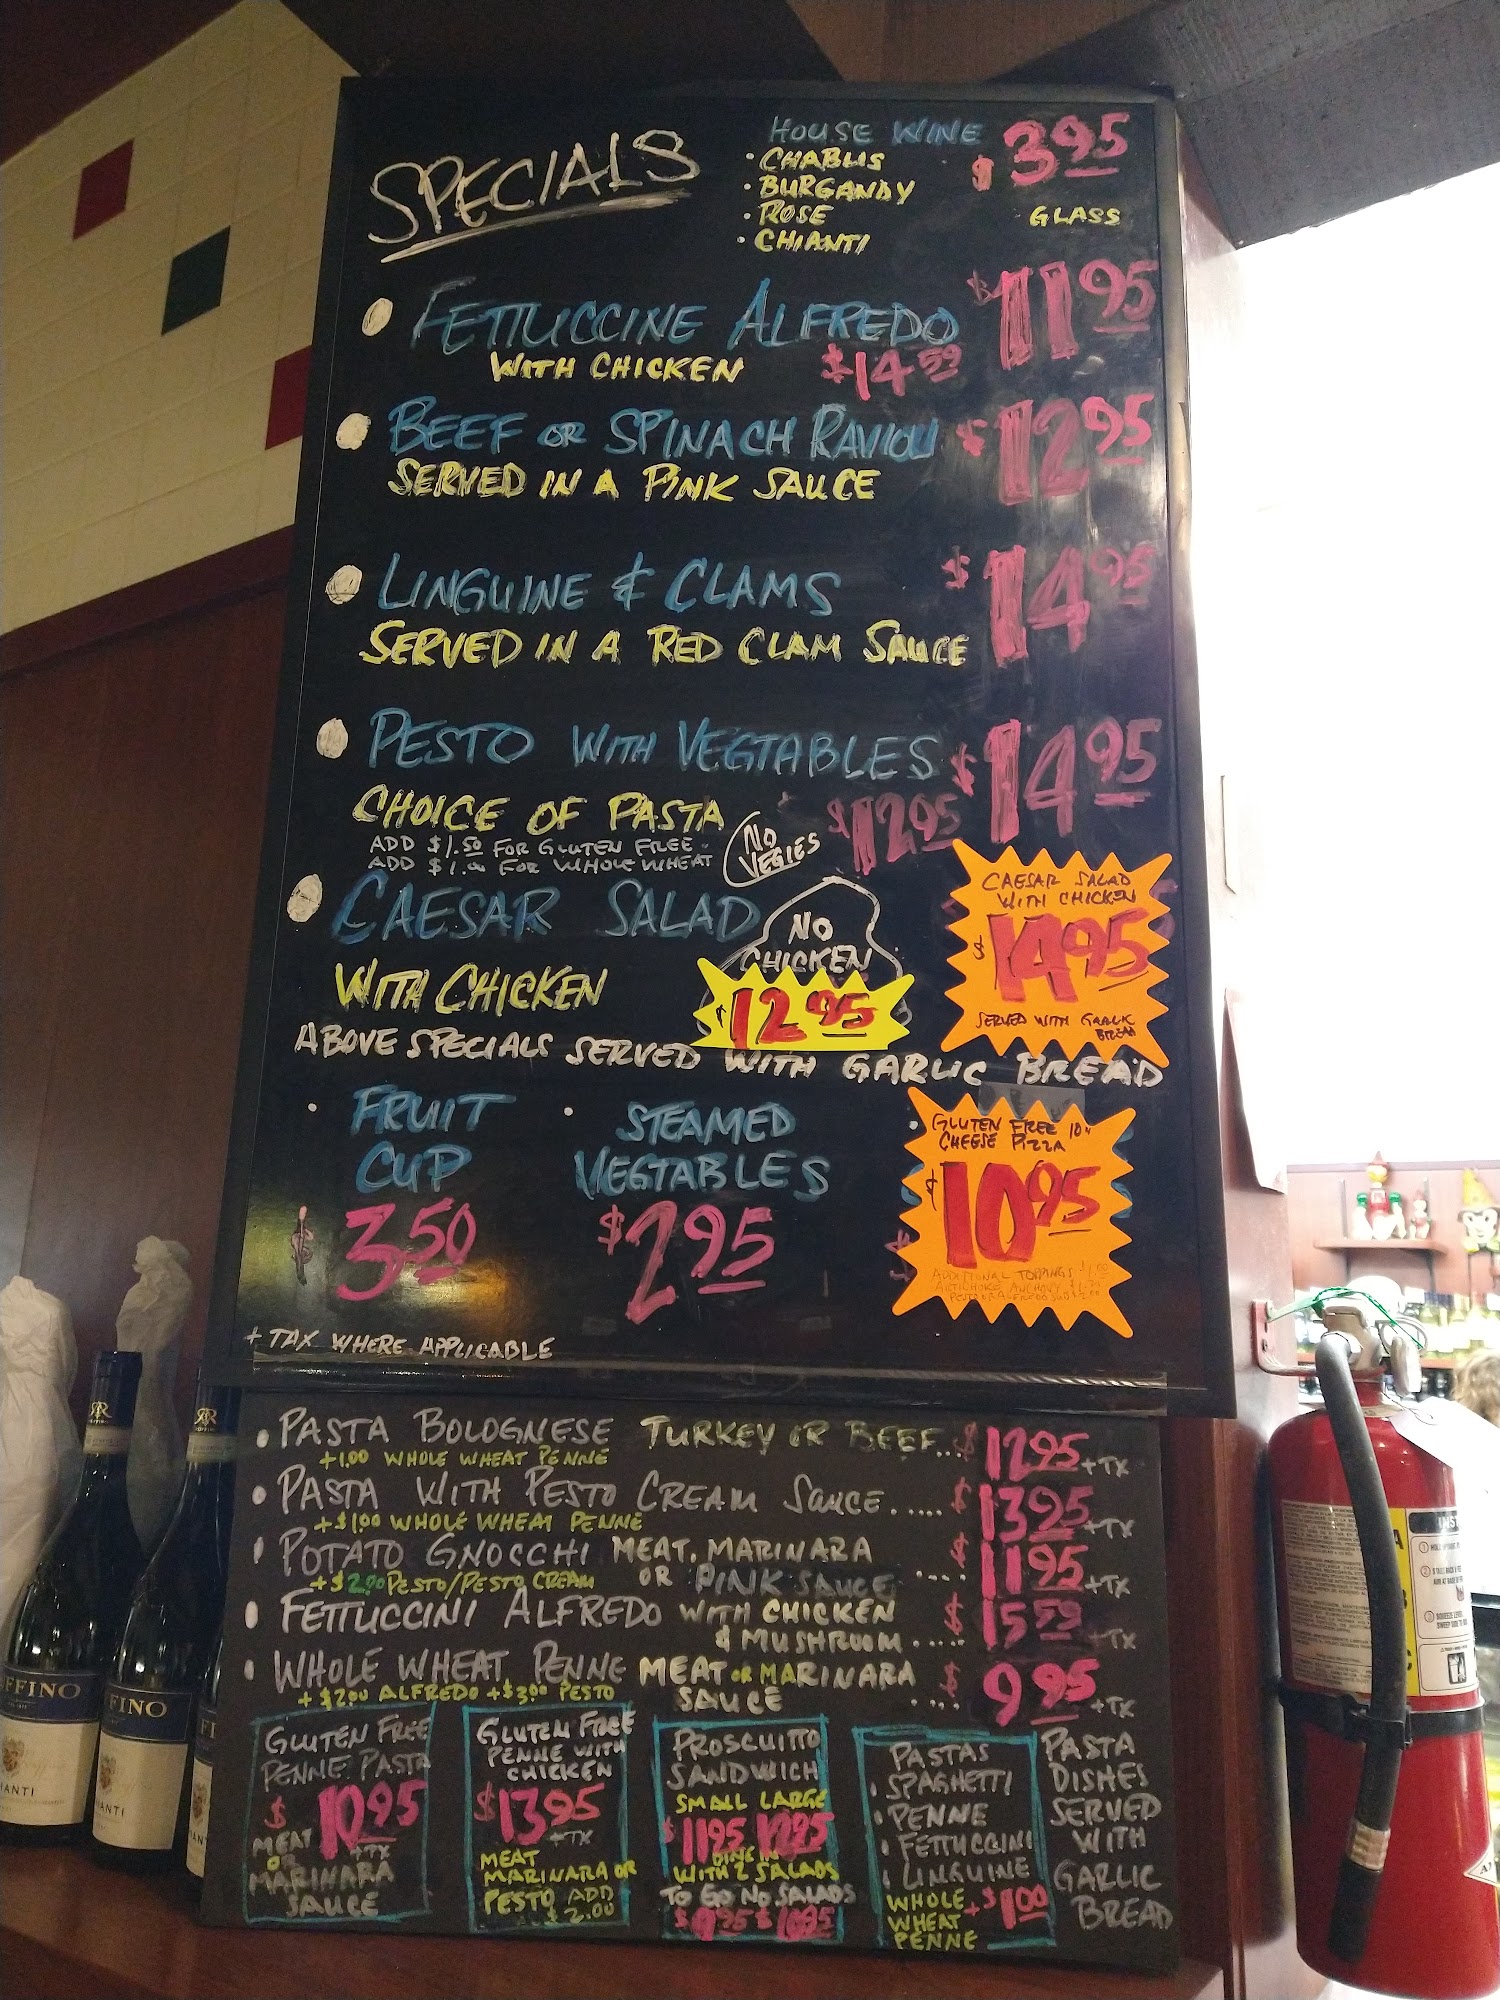 SPECIALS
HOUSE WINE $3.95
• CHABLIS
• BURGANDY
• ROSE
• CHIANTI
GLASS
FETTUCCINE ALFREDO $11.95
WITH CHICKEN $14.59
BEEF OR SPINACH RAVIOLI $12.95
SERVED IN A PINK SAUCE
LINGUINE & CLAMS $14.95
SERVED IN A RED CLAM SAUCE
PESTO WITH VEGTABLES $14.95
CHOICE OF PASTA
NO VEGIES $12.95
ADD $1.50 FOR GLUTEN FREE
ADD $1.00 FOR WHOLE WHEAT
CAESAR SALAD
WITH CHICKEN
NO
CHICKEN
$12.95
CAESAR SALAD
WITH CHICKEN
$14.95
SERVED WITH GARLIC
BREAD
ABOVE SPECIALS SERVED WITH GARLIC BREAD
• FRUIT
CUP
$3.50
• STEAMED
VEGTABLES
$2.95
GLUTEN FREE 10"
CHEESE PIZZA
$10.95
ADDITIONAL TOPPINGS
+ TAX WHERE APPLICABLE
• PASTA BOLOGNESE TURKEY OR BEEF... $12.95 +TX
+1.00 WHOLE WHEAT PENNE
• PASTA WITH PESTO CREAM SAUCE..... $13.95 +TX
+$1.00 WHOLE WHEAT PENNE
• POTATO GNOCCHI MEAT, MARINARA
OR PINK SAUCE .... $11.95 +TX
+$2.00 PESTO/PESTO CREAM
• FETTUCCINI ALFREDO WITH CHICKEN
& MUSHROOM.... $15.59 +TX
• WHOLE WHEAT PENNE MEAT OR MARINARA
SAUCE .... $9.95 +TX
+ $2.00 ALFREDO +$3.00 PESTO
GLUTEN FREE
PENNE PASTA
$10.95
+TX
MEAT
OR
MARINARA
SAUCE
GLUTEN FREE
PENNE WITH
CHICKEN
$13.95
+TX
MEAT
MARINARA OR
PESTO ADD
$2.00
PROSCUITTO
SANDWICH
SMALL LARGE
$11.95 12.95
DINE IN
WITH 2 SALADS
TO GO NO SALADS
$9.95 $10.95
PASTAS
• SPAGHETTI
• PENNE
• FETTUCCINI
• LINGUINE
WHOLE
WHEAT
PENNE
+$1.00
PASTA
DISHES
SERVED
WITH
GARLIC
BREAD
FFINO
FINO